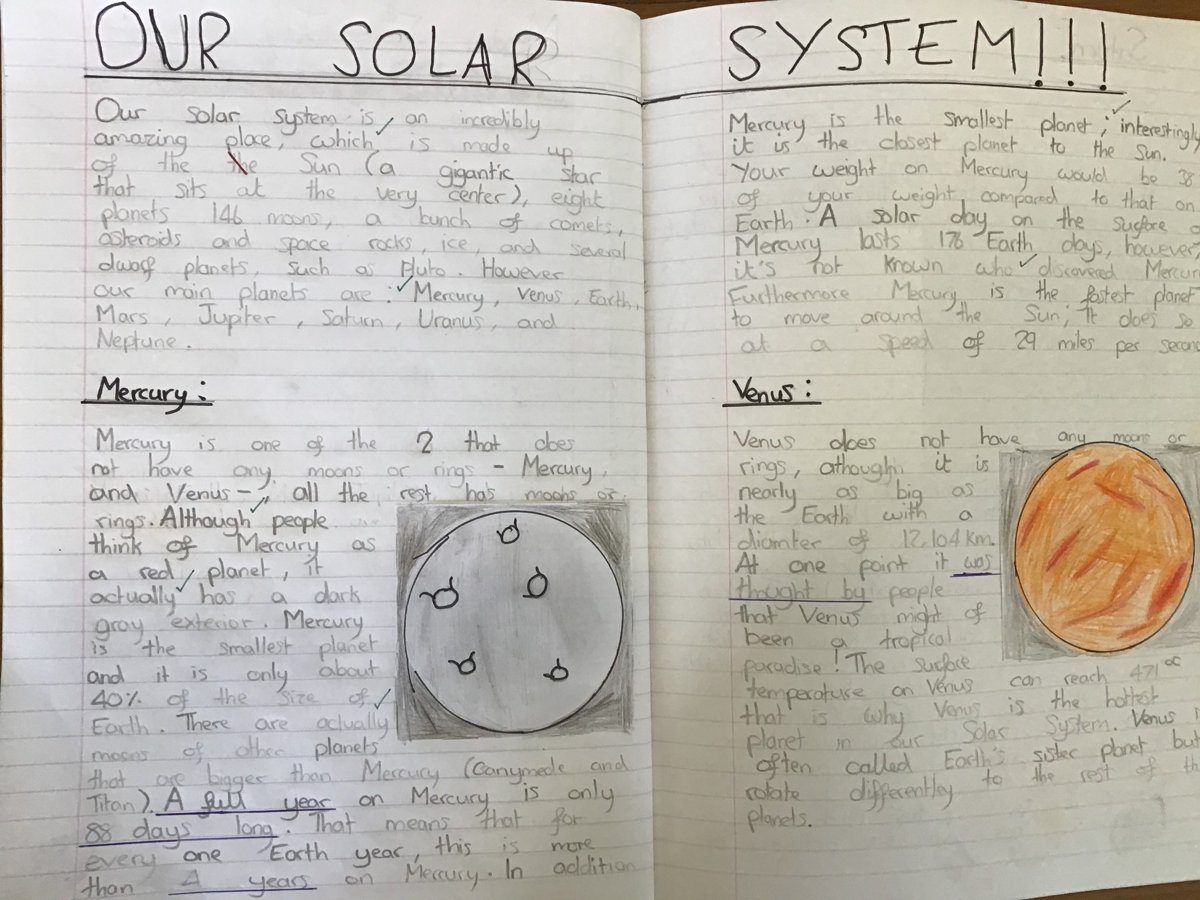 OUR SOLAR SYSTEM!!!
Our solar system is an incredibly
amazing place, which is made up
of the the Sun (a gigantic star
that sits at the very center), eight
planets 146 moons, a bunch of comets,
asteroids and space rocks, ice, and several
dwarf planets, such as Pluto. However
our main planets are: Mercury, Venus, Earth,
Mars, Jupiter, Saturn, Uranus, and
Neptune.
Mercury:
Mercury is one of the 2 that does
not have any moons or rings - Mercury
and Venus -, all the rest has moons or
rings. Although people
think of Mercury as
a red planet, it
actually has a dark
gray exterior. Mercury
is the smallest planet
and it is only about
40% of the size of
Earth. There are actually
moons of other planets
that are bigger than Mercury (Ganymede and
Titan). A full year on Mercury is only
88 days long. That means that for
every one Earth year, this is more
than 4 years on Mercury. In addition
Mercury is the smallest planet; interestingly
it is the closest planet to the Sun.
Your weight on Mercury would be 38
of your weight compared to that on
Earth. A solar day on the surface o
Mercury lasts 176 Earth days, however,
it's not known who discovered Mercur
Furthermore Mercury is the fastest planet
to move around the Sun, it does so
at a speed of 29 miles per secon
Venus:
Venus does not have any moons or
rings, although it is
nearly as big as
the Earth with a
diamter of 12,104 km.
At one point it was
thought by people
that Venus might of
been a tropical
paradise! The surface
temperature on Venus can reach 471°C
that is why Venus is the hottest
planet in our Solar System. Venus i
often called Earth's sister planet but
rotate differently to the rest of th
planets.